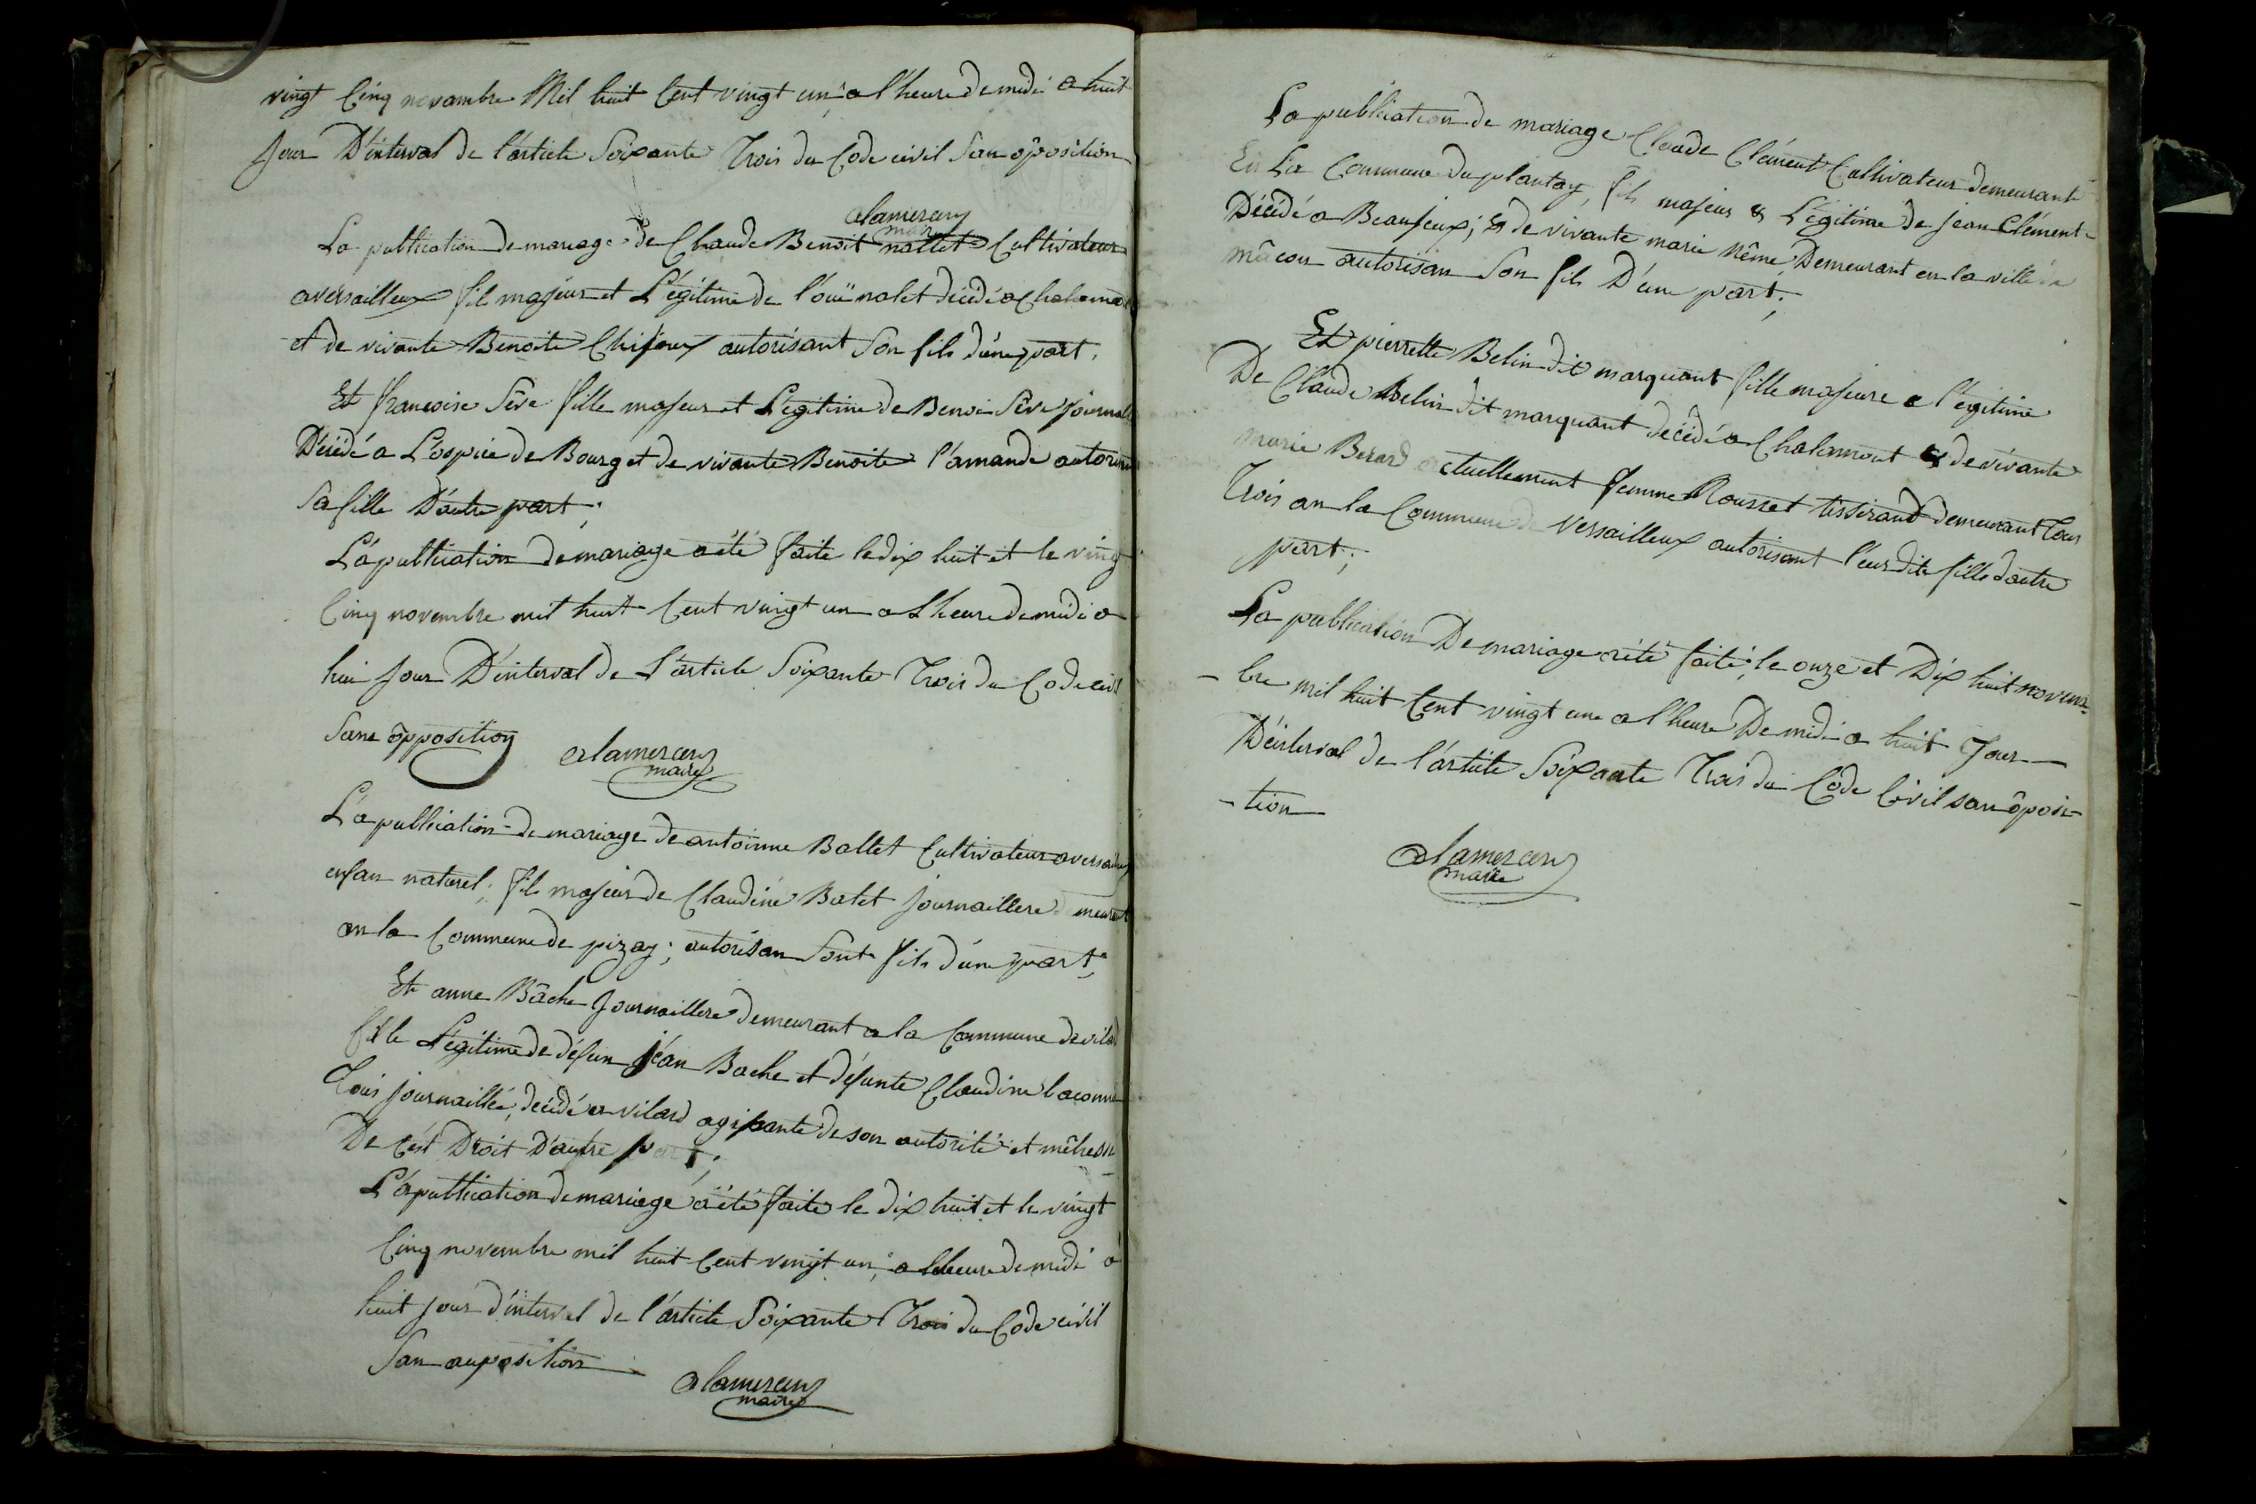 vingt Cinq novembre Mil huit Cent vingt un a l'heure de midi a huit
jour D'interval de l'article Soixante Trois du Code civil San ôposition
alamercery
maire
La publication de mariage de Claude Benoit nallet Cultivateur
a versailleux fils majeur et L'égitime de l'ouï nalet décédé a Chalamo
et de vivante Benoite Chifoux autorisant Son fils d'une part.
Et francoise Sêve fille majeur et L'égitime de Benoi Sêve journal
Décédé a L'ospice de Bourg et de vivante Benoite l'amande autorisan
Sa fille D'autre part;
L'a publication de mariage a été faite le dix huit et le ving
Cinq novembre mil huit Cent vingt un a L'heure de midi a
hui jour D'interval de L'article Soixante Trois du Code civil
Sane ôpposition
alamercery
maire
L'a publication de mariage de antoinne Ballet Cultivateur a versailleux
enfan naturel, fils majeur de Claudine Balet journaillere demeurant
en la Commune de pizay; autorisan Sont fils d'une part;
Et anne Bâche journaillere demeurant a la Commune de vilard
fille L'égitime de défun jéan Bache et défunte Claudine laconne
Touis journaillé, décédé a vilard agissante de son autorité et mêtresse
De C'est Droit D'autre part;
L'a publication de mariage a été faite le dix huit et le vingt
Cinq novembre mil huit Cent vingt un, a l'heure de midi a
huit jour d'interval de l'article Soixante Trois du Code civil
San auposition
alamercery
maire
La publication de mariage Claude Clément Cultivateur demeurant
En La Commune du plantay, fils majeur & L'égitime de jean Clément
Décédé a Beaujeux; & de vivante marie Même, Demeurant en la ville de
mâcon autorisan Son fils D'une part;
Et pierrette Belin dit marquant fille majeure e l'égitime
De Claude Belin dit marquant décédé a Chalamont & de vivante
marie Berard actuellement femme Rousset tisserand demeurant Tous
Trois an la Commune de Versailleux autorisant l'eur dite fille d'autre
part;
La publication De mariage a été faite, le onze et Dix huit novem-
-bre mil huit Cent vingt une a l'heure De midi a huit Jour
D'interval de l'article Soixante Trois du Code Civil san ôposi-
-tion
alamercery
maire